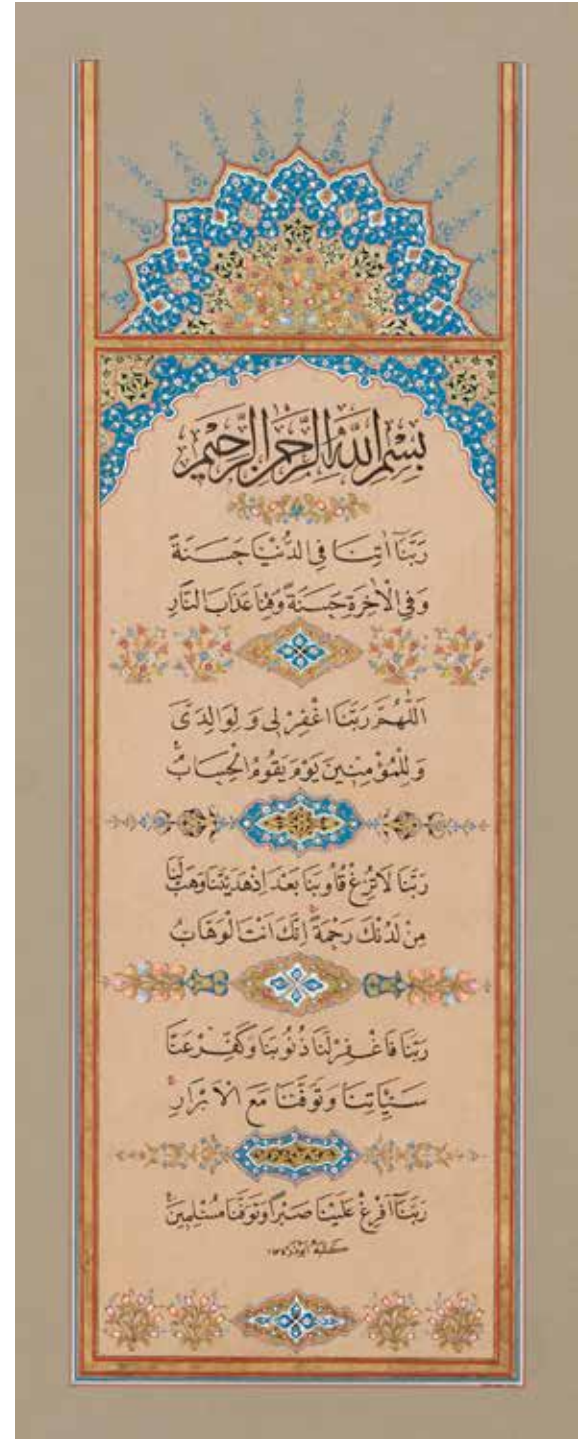 بِسْمِ اللّٰهِ الرَّحْمٰنِ الرَّحِيْمِ
رَبَّنَآ اٰتِنَا فِى الدُّنْيَا حَسَنَةً
وَفِى الْاٰخِرَةِ حَسَنَةً وَقِنَا عَذَابَ النَّارِ
اَللّٰهُمَّ رَبَّنَا اغْفِرْ لِى وَ لِوَالِدَىَّ
وَ لِلْمُؤْمِنِينَ يَوْمَ يَقُومُ الْحِسَابُ
رَبَّنَا لَاتُزِغْ قُلُوبَنَا بَعْدَ اِذْهَدَيْتَنَا وَهَبْ لَنَا
مِنْ لَدُنْكَ رَحْمَةً اِنَّكَ اَنْتَ الْوَهَّابُ
رَبَّنَا فَاغْفِرْ لَنَا ذُنُوبَنَا وَكَفِّرْ عَنَّا
سَيِّاٰتِنَا وَ تَوَفَّنَا مَعَ الْاَبْرَارِ
رَبَّنَآ اَفْرِغْ عَلَيْنَا صَبْرًا وَتَوَفَّنَا مُسْلِمِينَ
كتبهٔ ابوذر